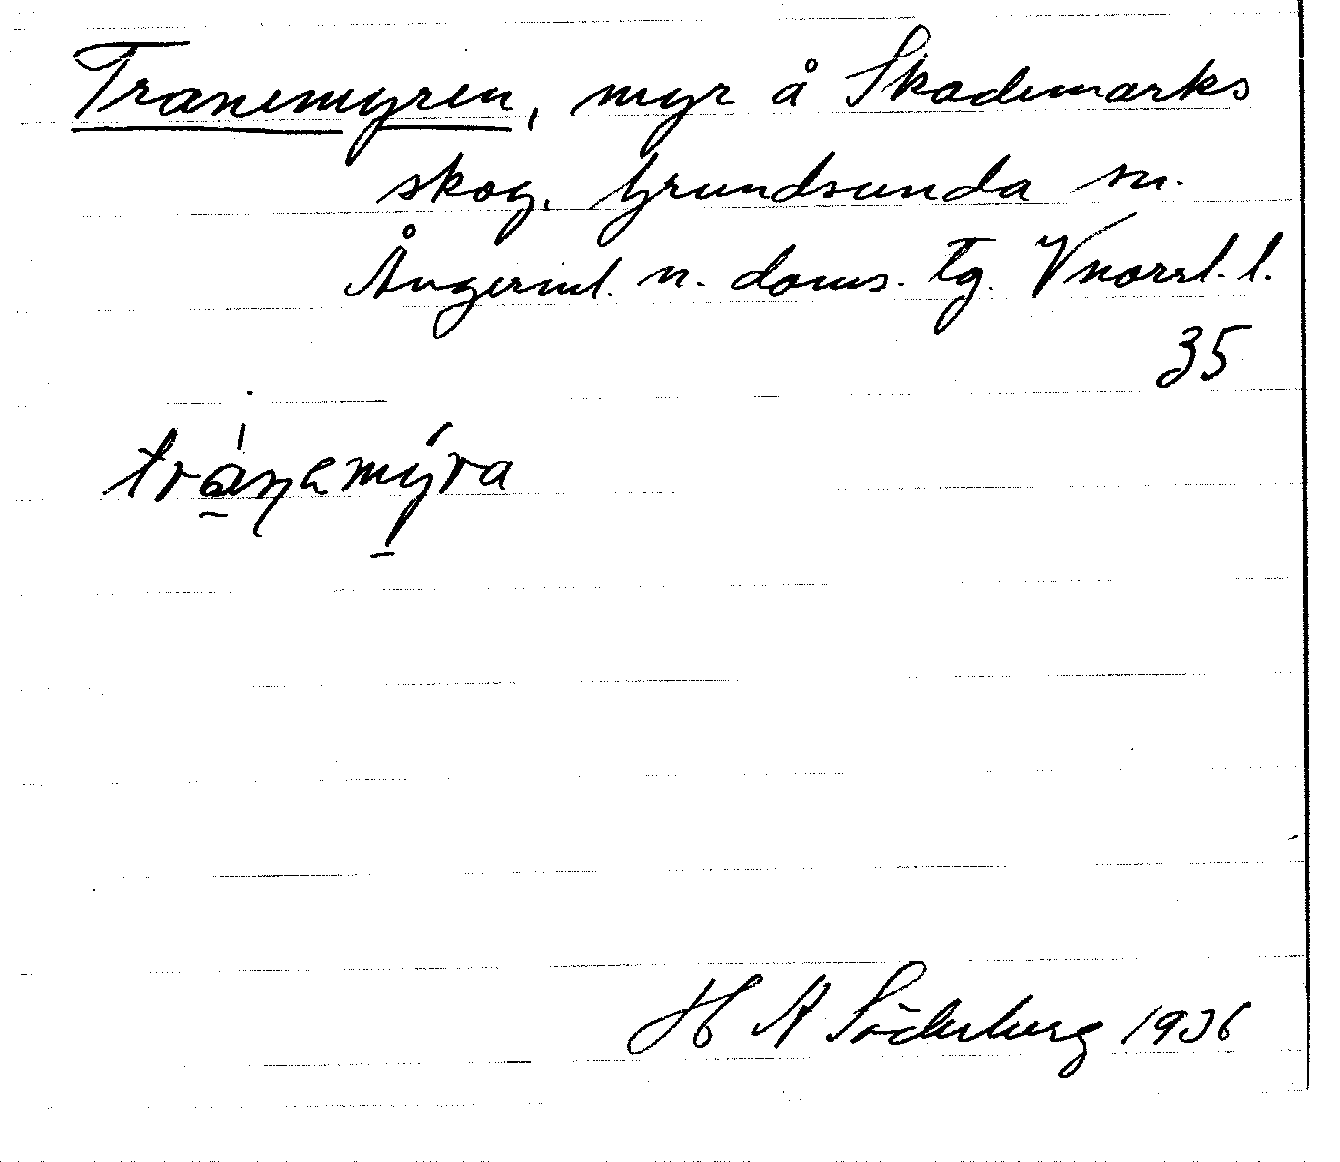 Tranemyren, myr å Skademarks
skog. Grundsunda sn.
Ångerml. n. doms. tg. Vnorrl. l.
35
tránemýra
H A Söderberg 1936